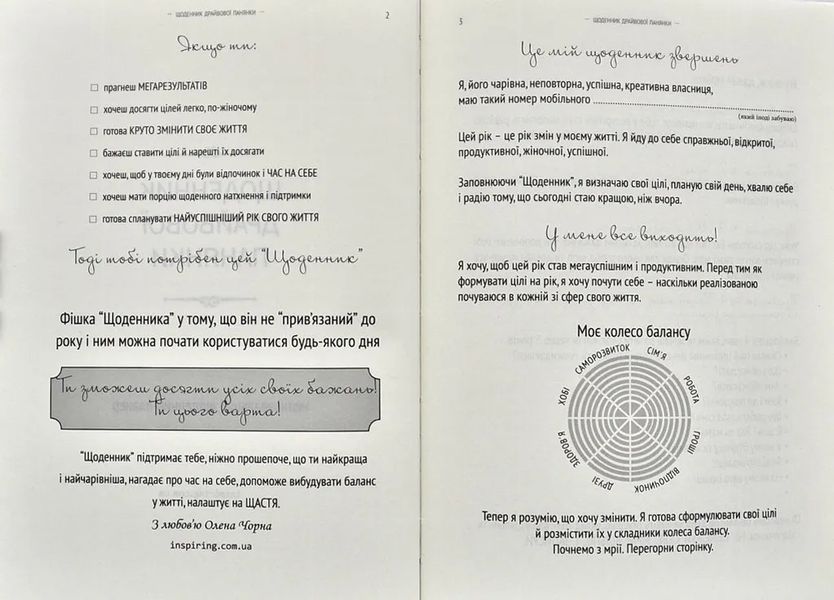 — ЩОДЕННИК ДРАЙВОВОЇ ПАНЯНКИ —
2
Якщо ти:
прагнеш МЕГАРЕЗУЛЬТАТІВ
хочеш досягти цілей легко, по-жіночому
готова КРУТО ЗМІНИТИ СВОЄ ЖИТТЯ
бажаєш ставити цілі й нарешті їх досягати
хочеш, щоб у твоєму дні були відпочинок і ЧАС НА СЕБЕ
хочеш мати порцію щоденного натхнення і підтримки
готова спланувати НАЙУСПІШНІШИЙ РІК СВОГО ЖИТТЯ
Тоді тобі потрібен цей “Щоденник”
Фішка “Щоденника” у тому, що він не “прив’язаний” до
року і ним можна почати користуватися будь-якого дня
Ти зможеш досягти усіх своїх бажань!
Ти цього варта!
“Щоденник” підтримає тебе, ніжно прошепоче, що ти найкраща
і найчарівніша, нагадає про час на себе, допоможе вибудувати баланс
у житті, налаштує на ЩАСТЯ.
З любов’ю Олена Чорна
inspiring.com.ua
3
— ЩОДЕННИК ДРАЙВОВОЇ ПАНЯНКИ —
Це мій щоденник звершень
Я, його чарівна, неповторна, успішна, креативна власниця,
маю такий номер мобільного ........................................................
(який іноді забуваю)
Цей рік – це рік змін у моєму житті. Я йду до себе справжньої, відкритої,
продуктивної, жіночної, успішної.
Заповнюючи “Щоденник”, я визначаю свої цілі, планую свій день, хвалю себе
і радію тому, що сьогодні стаю кращою, ніж вчора.
У мене все виходить!
Я хочу, щоб цей рік став мегауспішним і продуктивним. Перед тим як
формувати цілі на рік, я хочу почути себе – наскільки реалізованою
почуваюся в кожній зі сфер свого життя.
Моє колесо балансу
САМОРОЗВИТОК
СІМ’Я
РОБОТА
ГРОШІ
ВІДПОЧИНОК
ДРУЗІ
ЗДОРОВ’Я
ХОБІ
Тепер я розумію, що хочу змінити. Я готова сформулювати свої цілі
й розмістити їх у складники колеса балансу.
Почнемо з мрії. Перегорни сторінку.